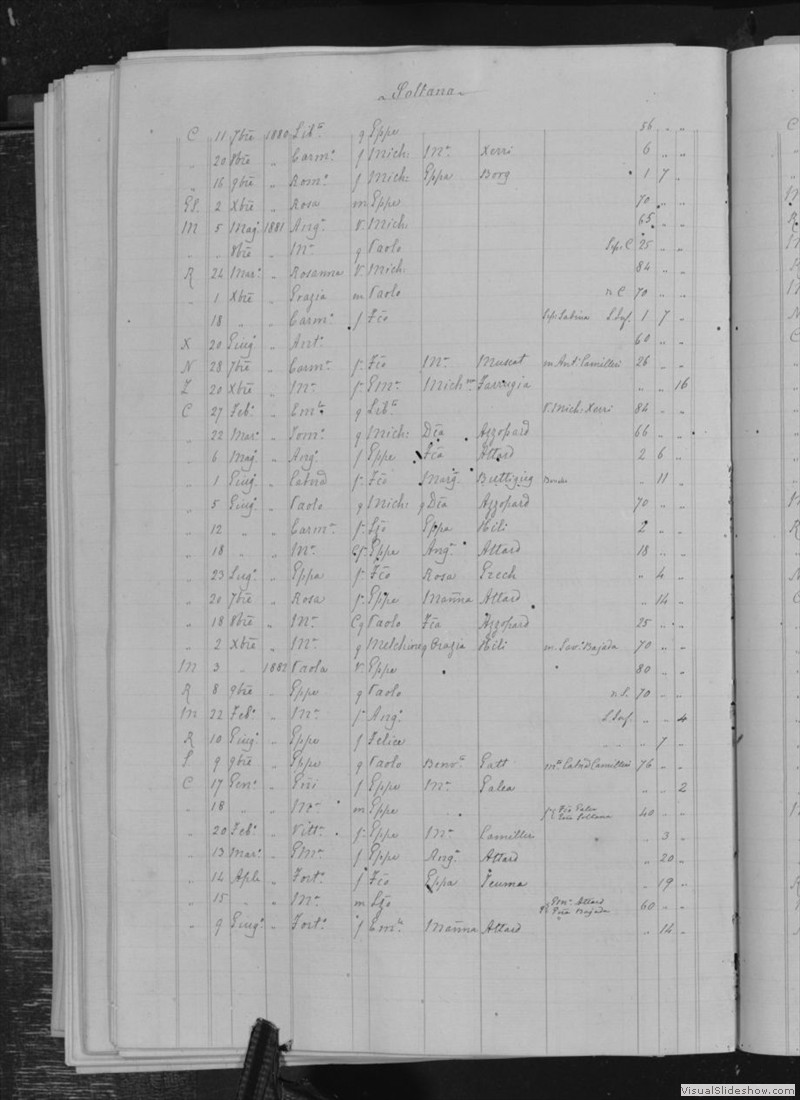 Soltana
C 11 7bre 1880 Lib.a q Eppe 56 " "
" 20 8bre " Carm.a f Mich: M.a Xerri 6 " "
" 16 9bre " Rom.a f Mich: Eppa Borg 1 7 "
2 Xbre " Rosa m Eppe 70 " "
M 5 Mag. 1881 Ang.a V. Mich 65 " "
" 8bre " M.a q Paolo C 25 " "
R 24 Mar. " Rosanna V. Mich. 84 " "
" 1 Xbre " Grazia m Paolo n C 70 " "
18 " " Carm.a f Fco Sabina 1 7 "
X 20 Giug " Ant.a 60 " "
N 28 7bre " Carm.a f. Fco M.a Muscat m Ant. Camilleri 26 " "
Z 20 Xbre " M.a f. Em. Farrugia " " 16
C 27 Feb. " q Lib.a V. Mich. Xerri 84 " "
" 22 Mar. " q Mich: Dca Azzopard 66 " "
" 6 Mag. " Ang. f Eppe Fca Attard 2 6 "
" 1 Giug " f. Fco Marg. Buttigieg " 11 "
" 5 Giug. " Paolo q Mich: q Dca Azzopard 70 " "
" 12 " " Carm.a f. Eppa Hili 2 " "
" 18 " " M.a Cf. Eppe Ang.a Attard 18 " "
" 23 Lug. " Eppa f. Fco Rosa Grech " 4 "
" 20 7bre " Rosa f. Eppe Marina Attard " 14 "
" 18 8bre " M.a Cq Paolo Fca Azzopard 25 " "
" 2 Xbre " M.a q q Grazia Hili m. Sav. Bajada 70 " "
M 3 " 1882 Paola V. Eppe 80 " "
R 8 9bre " Eppe q Paolo n S. 70 "
M 22 Feb. " M.a f. Ang. " " 4
R 10 Giug. " Eppe f Felice " 7 "
9 9bre " Eppe q Paolo Benv.a Gatt Camilleri 76 " "
C 17 Gen. " f Eppe M.a Galea " " 2
" 18 " " M.a m Eppe Fco Galea Soltana 40 " "
" 20 Feb. " Vitt.a f. Eppe M.a Camilleri " 3 "
" 13 Mar. " f Eppe Ang. Attard " 20 "
" 14 Aple " Fort. f Fco Eppa Teuma " 19 "
" 15 " " M.a m Attard Bajada 60 " "
" 9 Giug. " Fort. f Marina Attard " 14 "
VisualSlideshow.com